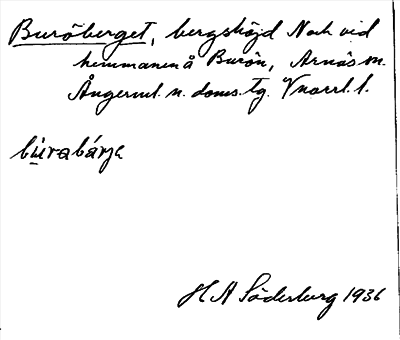 Buröberget, bergshöjd N och vid
hemmanen å Burön, Arnäs sn.
Ångerml. n. doms. tg. Vnorrl. l.
bu̠rabárja
H A Söderberg 1936